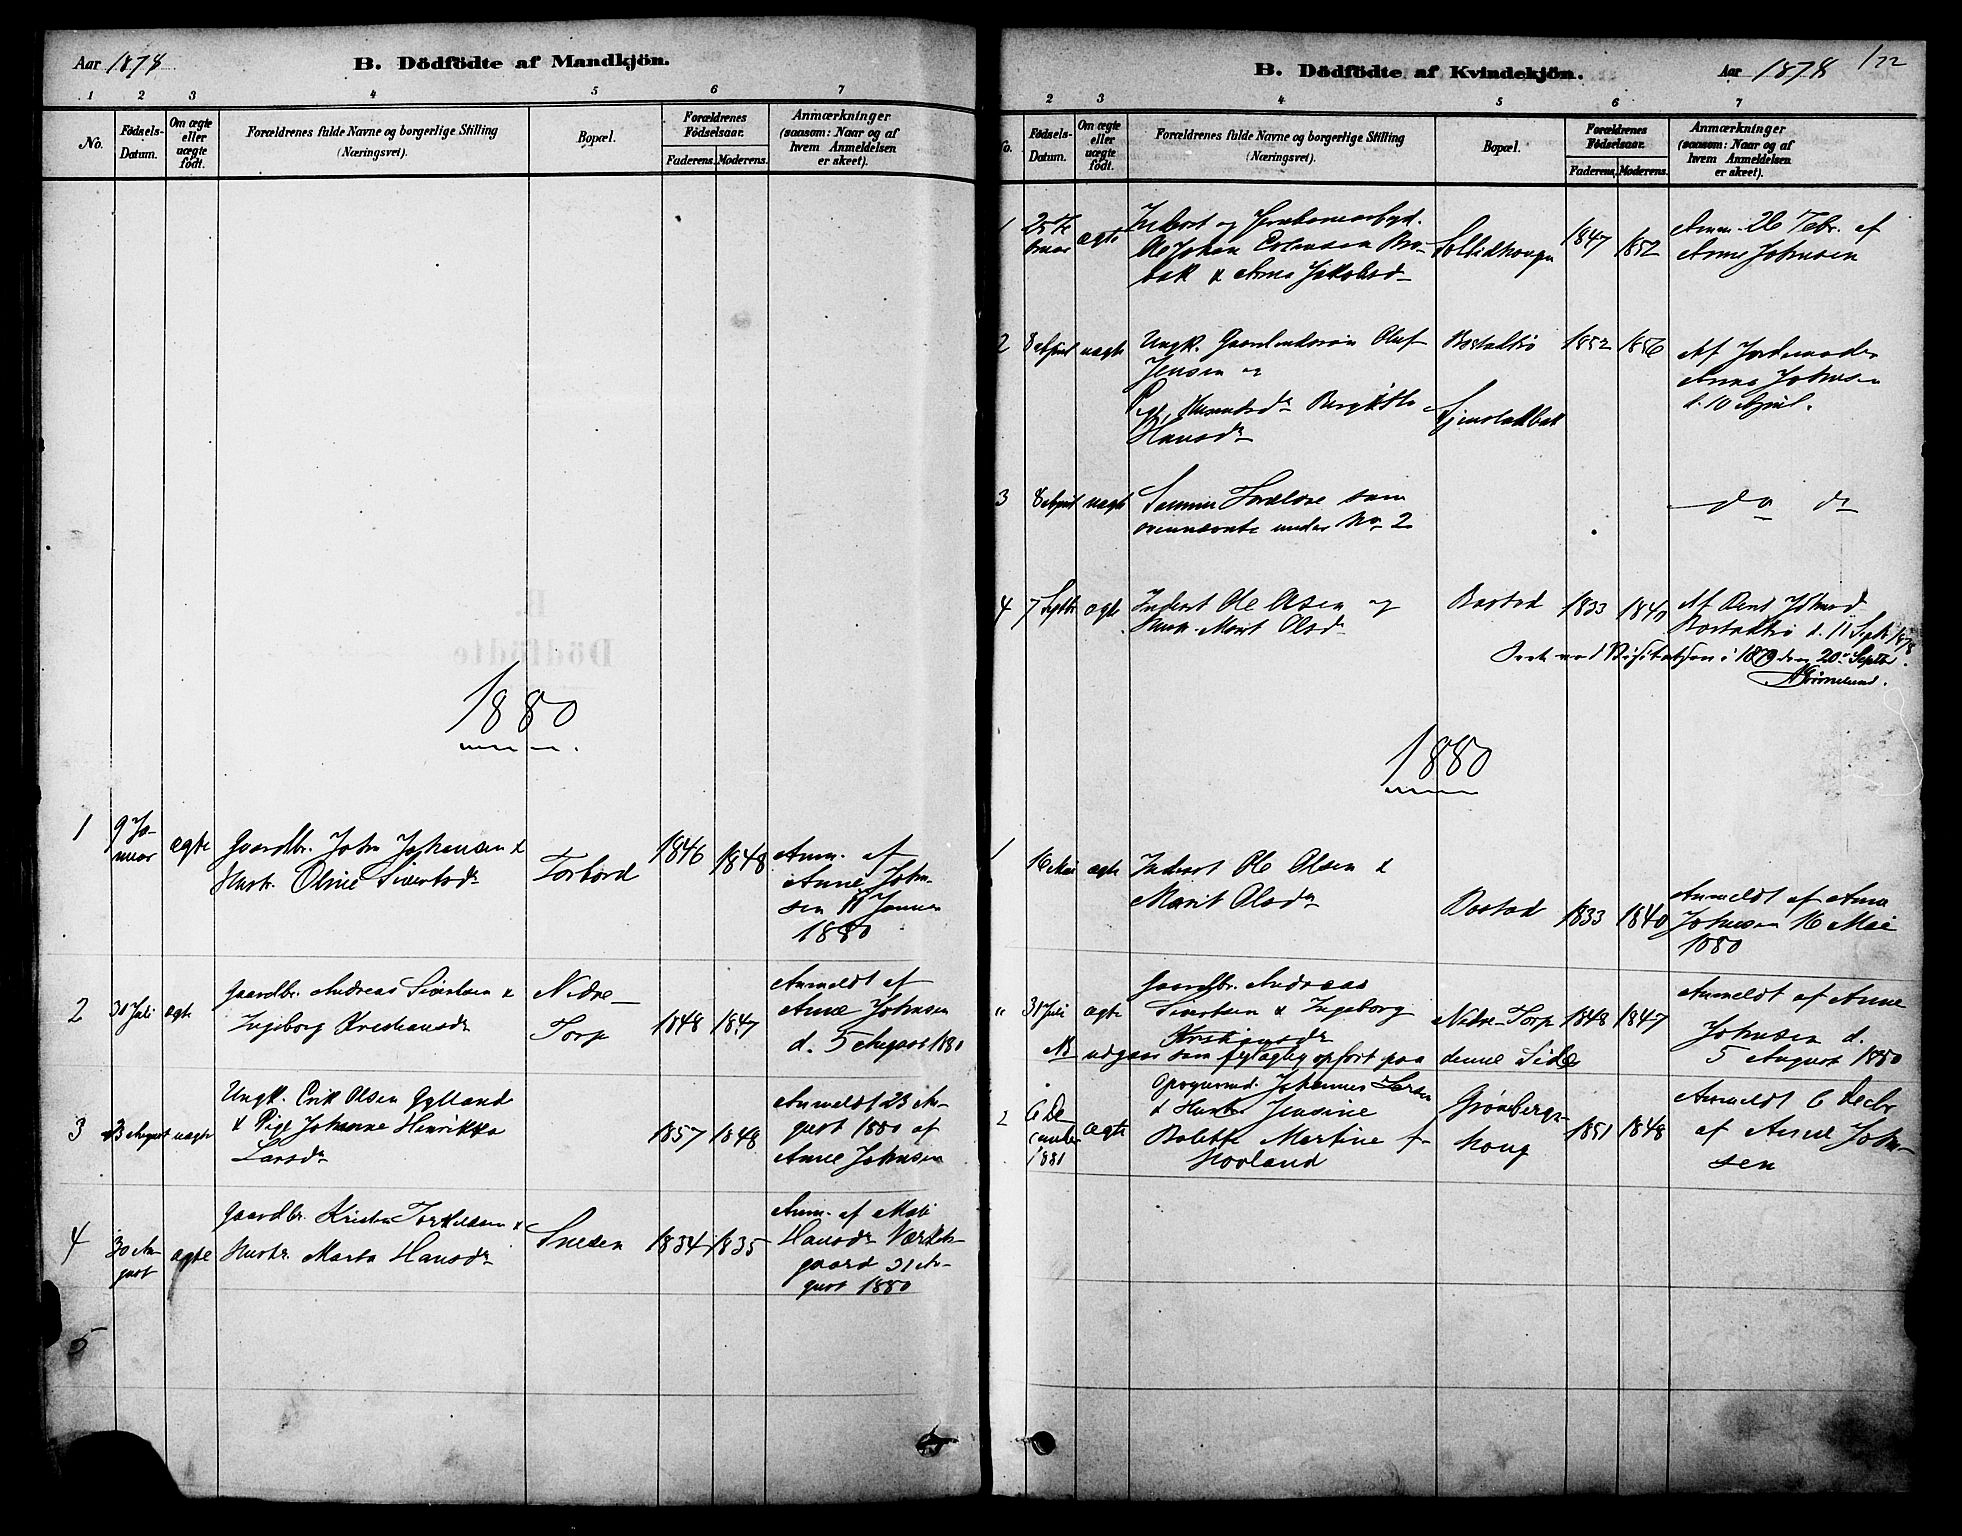 Aar 1878
B. Dödfödte af Mandkjön.
1 2 3 4 5 6 7
No.
Födsels-Datum.
Om ægte eller uægte födt.
Forældrenes fulde Navne og borgerlige Stilling (Næringsvei).
Bopæl.
Forældrenes Födselsaar.
Faderens. Moderens.
Anmærkninger (saasom: Naar og af hvem Anmeldelsen er skeet).
1880
1 9 Januar ægte Gaardbr. John Johansen &
Hustr. Oline Sivertsdr
Torbord 1846 1848
Anm. af
Anne John-
sen 11 Januar
1880
2 30 Juli ægte Gaardbr. Andreas Sivertsen &
Ingeborg Kristiansdr
Nedre
Torp 1848 1847
Anmeldt af
Anne Johnsen
d. 5 August 1880
3 August uægte Ungk. Erik Olsen Gylland
& Pige Johanne Henrikka
Larsdr
1857 1848
Anmeldt 23 Au-
gust 1880 af
Anne Johnsen
4 30 Au-
gust ægte Gaardbr. Torkelsen &
Hustr. Marta Hansdr
Snesen 1834 1835
Anm. af
Hansdr
gaard 31 Au-
gust 1880
5
B. Dödfödte af Kvindekjön.
Aar 1878
122
2 3 4 5 6 7
No.
Födsels-Datum.
Om ægte eller uægte födt.
Forældrenes fulde Navne og borgerlige Stilling (Næringsvei).
Bopæl.
Forældrenes Födselsaar.
Faderens. Moderens.
Anmærkninger (saasom: Naar og af hvem Anmeldelsen er skeet).
1 25 Fe-
bruar ægte Inderst og Jernbanearbeid.
Ole Johan Estensen Bro-
bak & Anne Jakobsdr
1847 1852
Anm. 26 Febr. af
Anne Johnsen
2 8 April uægte Ungk. Gaardmandssøn Oluf
Jensen og
Pige
Hansdr
1852 1856
Af Jordemoder
Anne Johnsen
d. 10 April.
3 8 April uægte Samme Forældre som
ovennævnte under No 2
do do
4 7 Septbr ægte Inderst Ole Olsen og
Hustr. Marit Olsdr
Bostad 1833 1840
Af
d. 11 Septbr 1878
1879 den 20. Septbr.
1880
1 16 Mai ægte Inderst Ole Olsen &
Marit Olsdr
Bostad 1833 1840
Anmeldt af Anne
Johnsen 16 Mai
1880
" 30 Juli ægte Gaardbr. Andreas
Sivertsen & Ingeborg
Kristiansdr
Nedre-Torp 1848 1847
Anmeldt af Anne
Johnsen d.
5 August 1880
NB udgaar som feilagtig opført paa denne Side
2 6 De-
cember
1881 ægte Johannes Larsen
& Hustr. Jensine
Bolette Martine f.
Hovland
Grønbergs-
houg 1851 1848
Anmeldt 6 Decbr
af Anne John-
sen